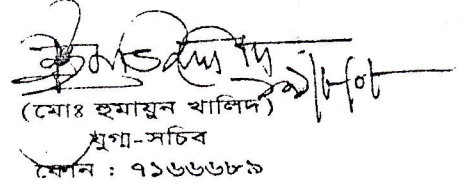 (মোঃ হুমায়ুন খালিদ)
যুগ্ম-সচিব
ফোন : ৭১৬৬৬৮৯